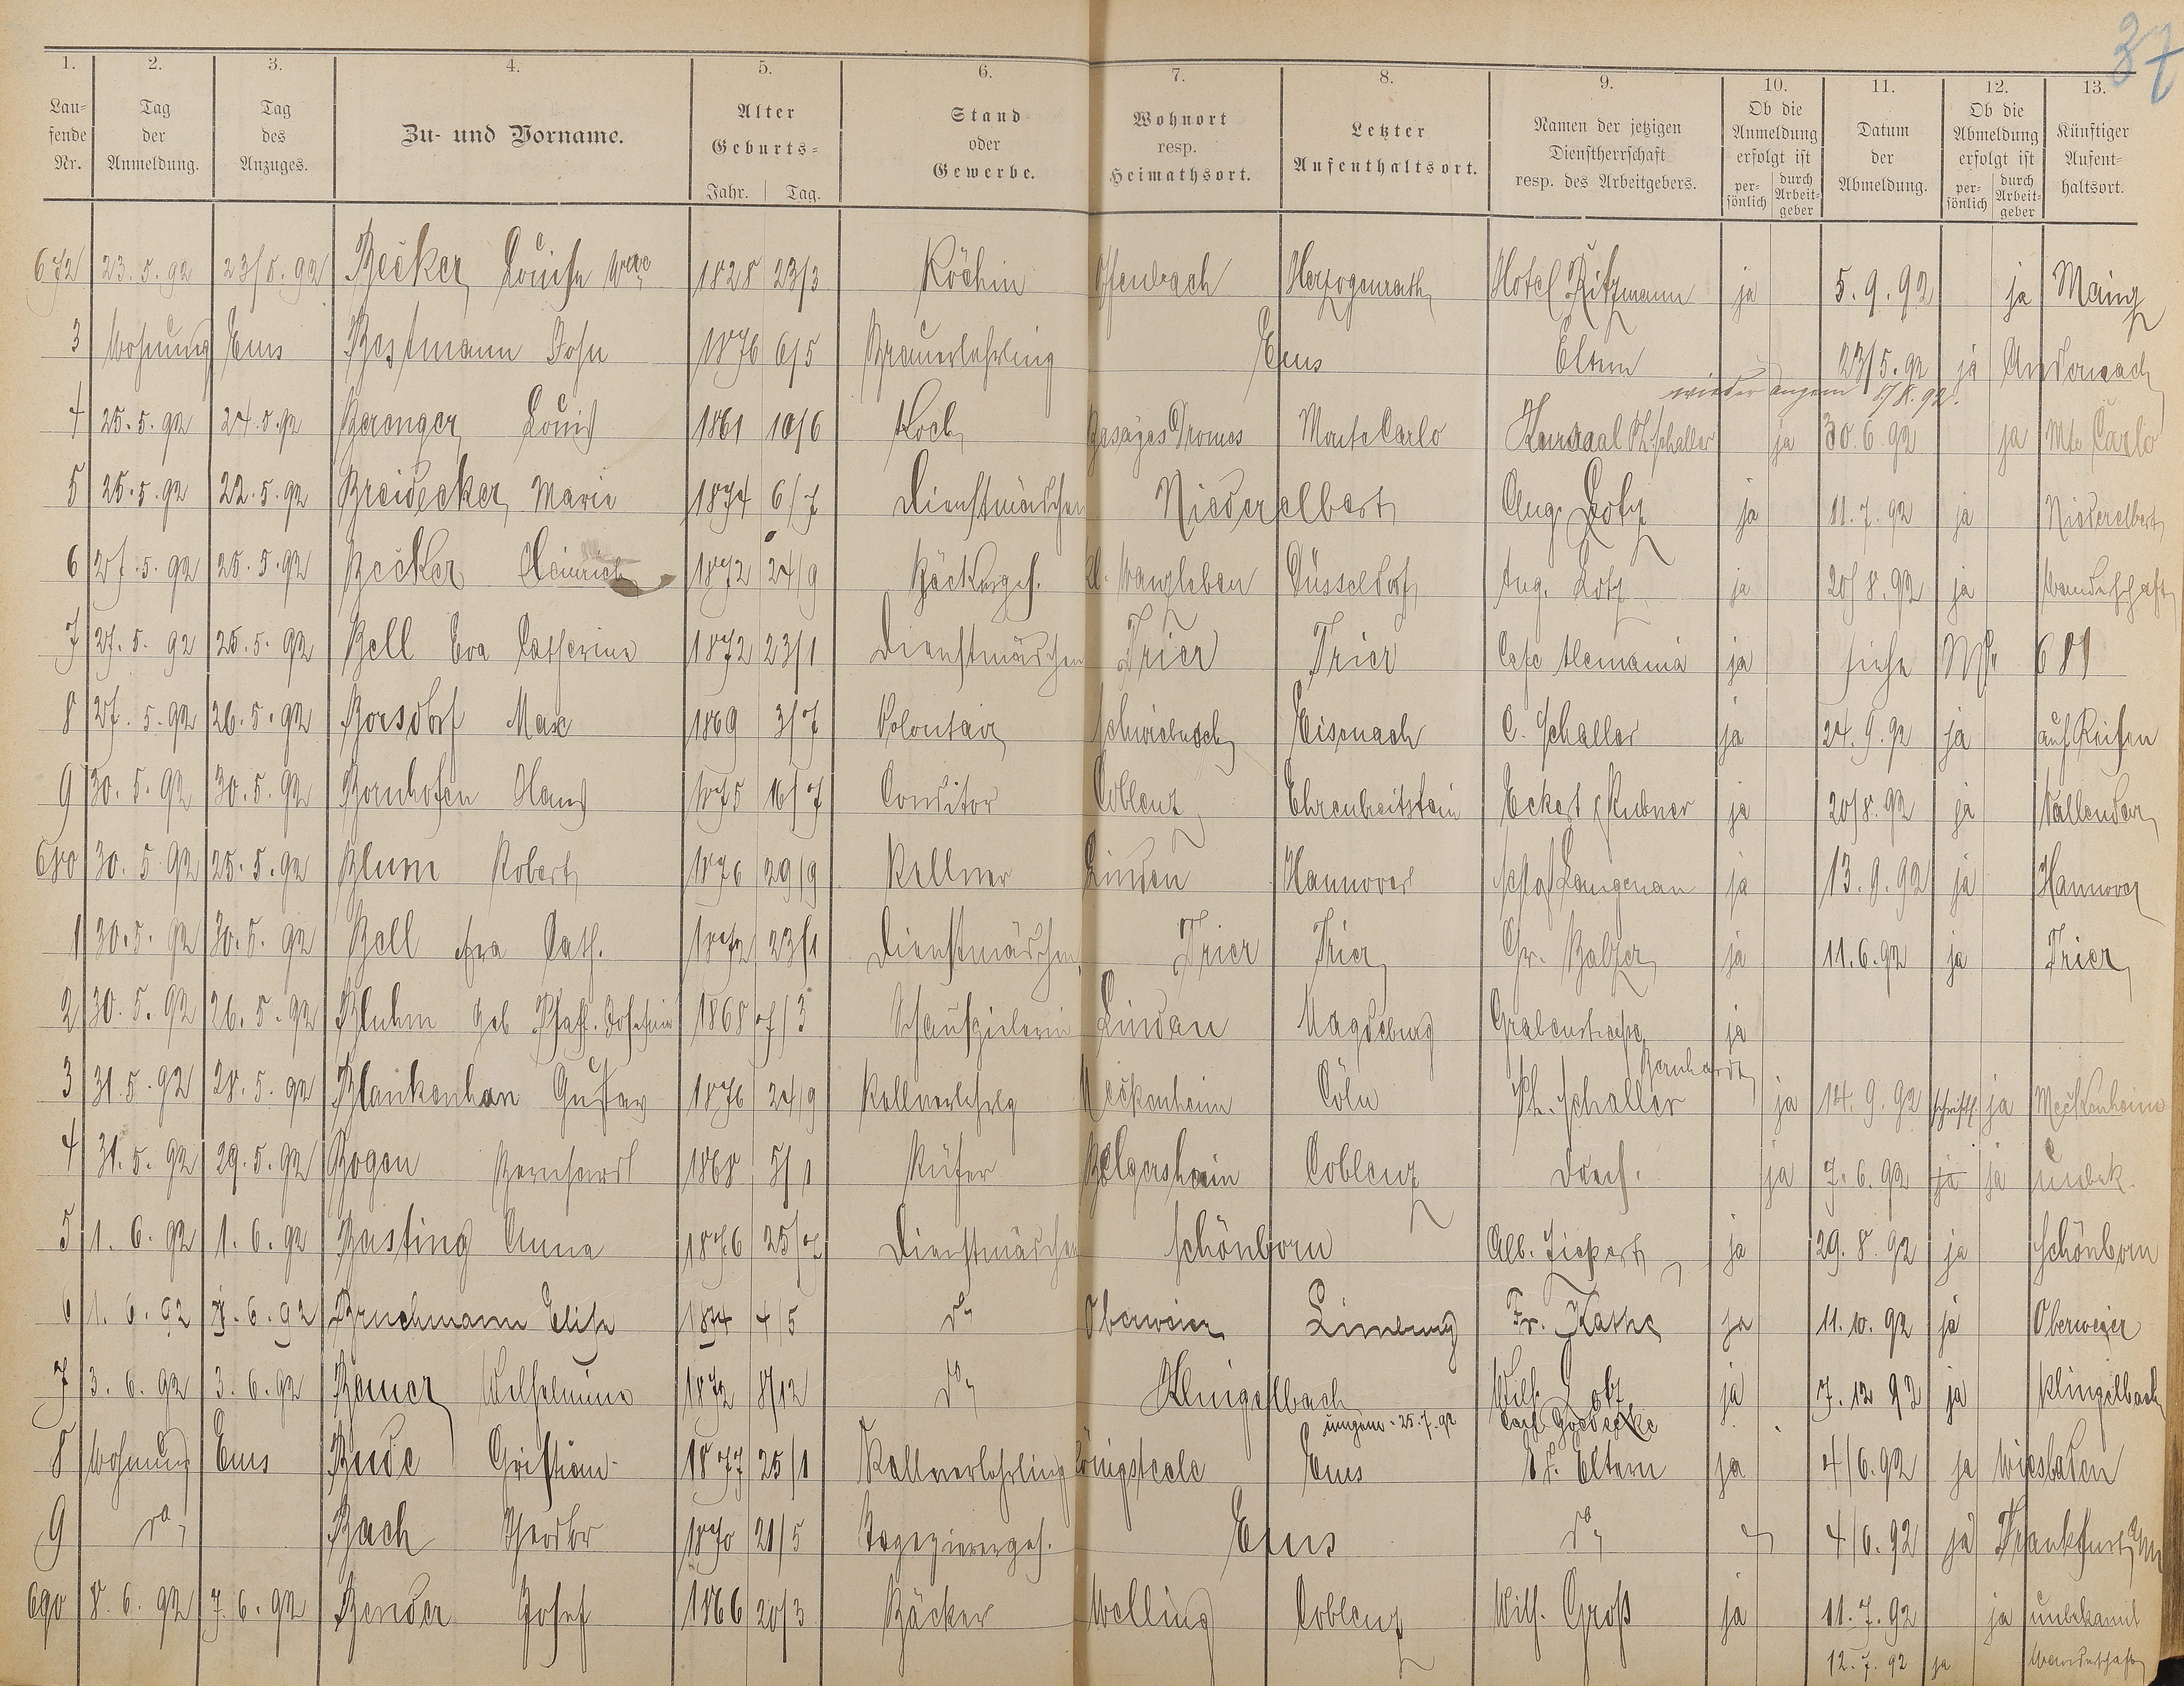 37
1. 2. 3. 4. 5. 6. 7. 8. 9. 10. 11. 12. 13.
Lau=
fende
Nr.
Tag
der
Anmeldung.
Tag
des
Anzuges.
Zu- und Vorname.
Alter
Geburts=
Jahr. Tag.
Stand
oder
Gewerbe.
Wohnort
resp.
Heimathsort.
Letzter
Aufenthaltsort.
Namen der jetzigen
Dienstherrschaft
resp. des Arbeitgebers.
Ob die
Anmeldung
erfolgt ist
per-
sönlich
durch
Arbeit-
geber
Datum
der
Abmeldung.
Ob die
Abmeldung
erfolgt ist
per-
sönlich
durch
Arbeit-
geber
Künftiger
Aufent=
haltsort.
672 23.5.92 23/5.92 Becker Louise Wwe 1828 23/3 Köchin Offenbach Herzogenrath Hotel Ritzmann ja 5.9.92 ja Mainz
3 Wohnung Ems Bestmann John 1876 6/5 Brauerlehrling Ems Eltern 23/5.92 ja Andernach
wieder angem 5/8.92.
4 25.5.92 24.5.92 Berenger Louis 1861 10/6 Koch Monte Carlo Kursaal Ph. Schaller ja 30.6.92 ja Mte Carlo
5 25.5.92 22.5.92 Breidecker Marie 1874 6/7 Dienstmädchen Niederelbert Aug. Lotz ja 11.7.92 ja Niederelbert
6 27.5.92 25.5.92 Becker Heinrich 1872 24/9 Bäckerges. Kl. Wanzleben Düsseldorf Aug. Lotz ja 20/8.92 ja Wanderschaft
7 27.5.92 25.5.92 Bell Eva Catherine 1872 23/1 Dienstmädchen Trier Trier Cafe Alemania ja siehe Nr 681
8 27.5.92 26.5.92 Borsdorf Max 1869 3/7 Volontair Eisenach C. Schaller ja 24.9.92 ja auf Reisen
9 30.5.92 30.5.92 Bornhofen Hans 1875 16/7 Conditor Coblenz Ehrenbreitstein Eckert ja 20/8.92 ja Vallendar
680 30.5.92 25.5.92 Blum Robert 1876 29/9 Kellner Linden Hannover Schloß Langenau ja 13.9.92 ja Hannover
1 30.5.92 30.5.92 Bell Eva Cath. 1872 23/1 Dienstmädchen Trier Trier Chr. Balzer ja 11.6.92 ja Trier
2 30.5.92 26.5.92 Bluhm geb Josefine 1868 7/3 Schauspielerin Lindau Magdeburg Grabenstraße ja
Bernhardt
3 31.5.92 28.5.92 Blankenhan Gustav 1876 24/9 Kellnerlehrlg Meckenheim Cöln Ph. Schaller ja 14.9.92 schriftl. ja Meckenheim
4 31.5.92 29.5.92 Bogen Bernhard 1868 5/1 Küfer Coblenz ders. ja 7.6.92 ja ja unbek.
5 1.6.92 1.6.92 Basting Anna 1876 25/7 Dienstmädchen Schönborn Alb. ja 29.8.92 ja Schönborn
6 1.6.92 1.6.92 Bruchmann Elise 1874 4/5 do Oberweier Limburg Fr. Kathe ja 11.10.92 ja Oberweier
7 3.6.92 3.6.92 Bauer Wilhelmine 1872 8/12 do Klingelbach Wilh. Lotz ja 7.12.92 ja Klingelbach
umgem. 25.7.92 Carl Goedecke
8 Wohnung Ems Bude Christian 1877 25/1 Kellnerlehrling Königsteele Ems b/d. Eltern ja 4/6.92 ja Wiesbaden
9 do Bach Theodor 1870 21/5 Tapezierergeh. Ems do 4/6.92 ja Frankfurt a/M
690 8.6.92 7.6.92 Bender Josef 1866 20/3 Bäcker Welling Coblenz Wilh. Groß ja 11.7.92 ja unbekannt
12.7.92 ja Wanderschaft